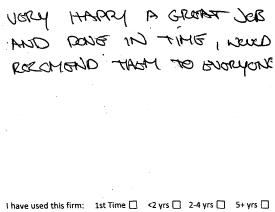 VERY HAPPY A GREAT JOB
AND DONE IN TIME, WOULD
RECOMEND THEM TO EVERYONE
I have used this firm: 1st Time ☐ <2 yrs ☐ 2-4 yrs ☐ 5+ yrs ☐